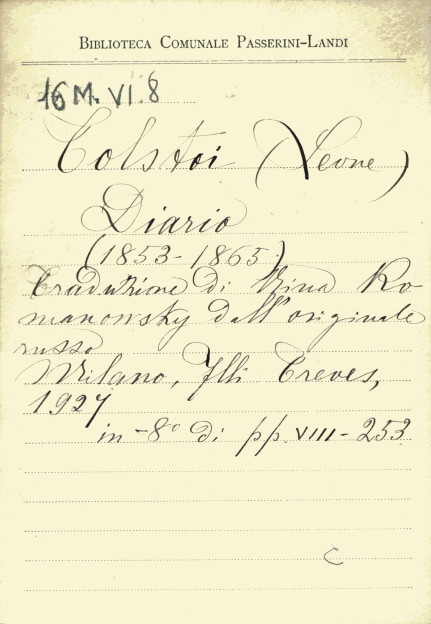 BIBLIOTECA COMUNALE PASSERINI-LANDI
16 M. VI. 8
Tolstoi (Leone)
Diario
(1853-1865)
Traduzione di Nina Ro-
manowsky dall'originale
russo
Milano, Flli Treves,
1927
in-8° di pp. VIII-253
C